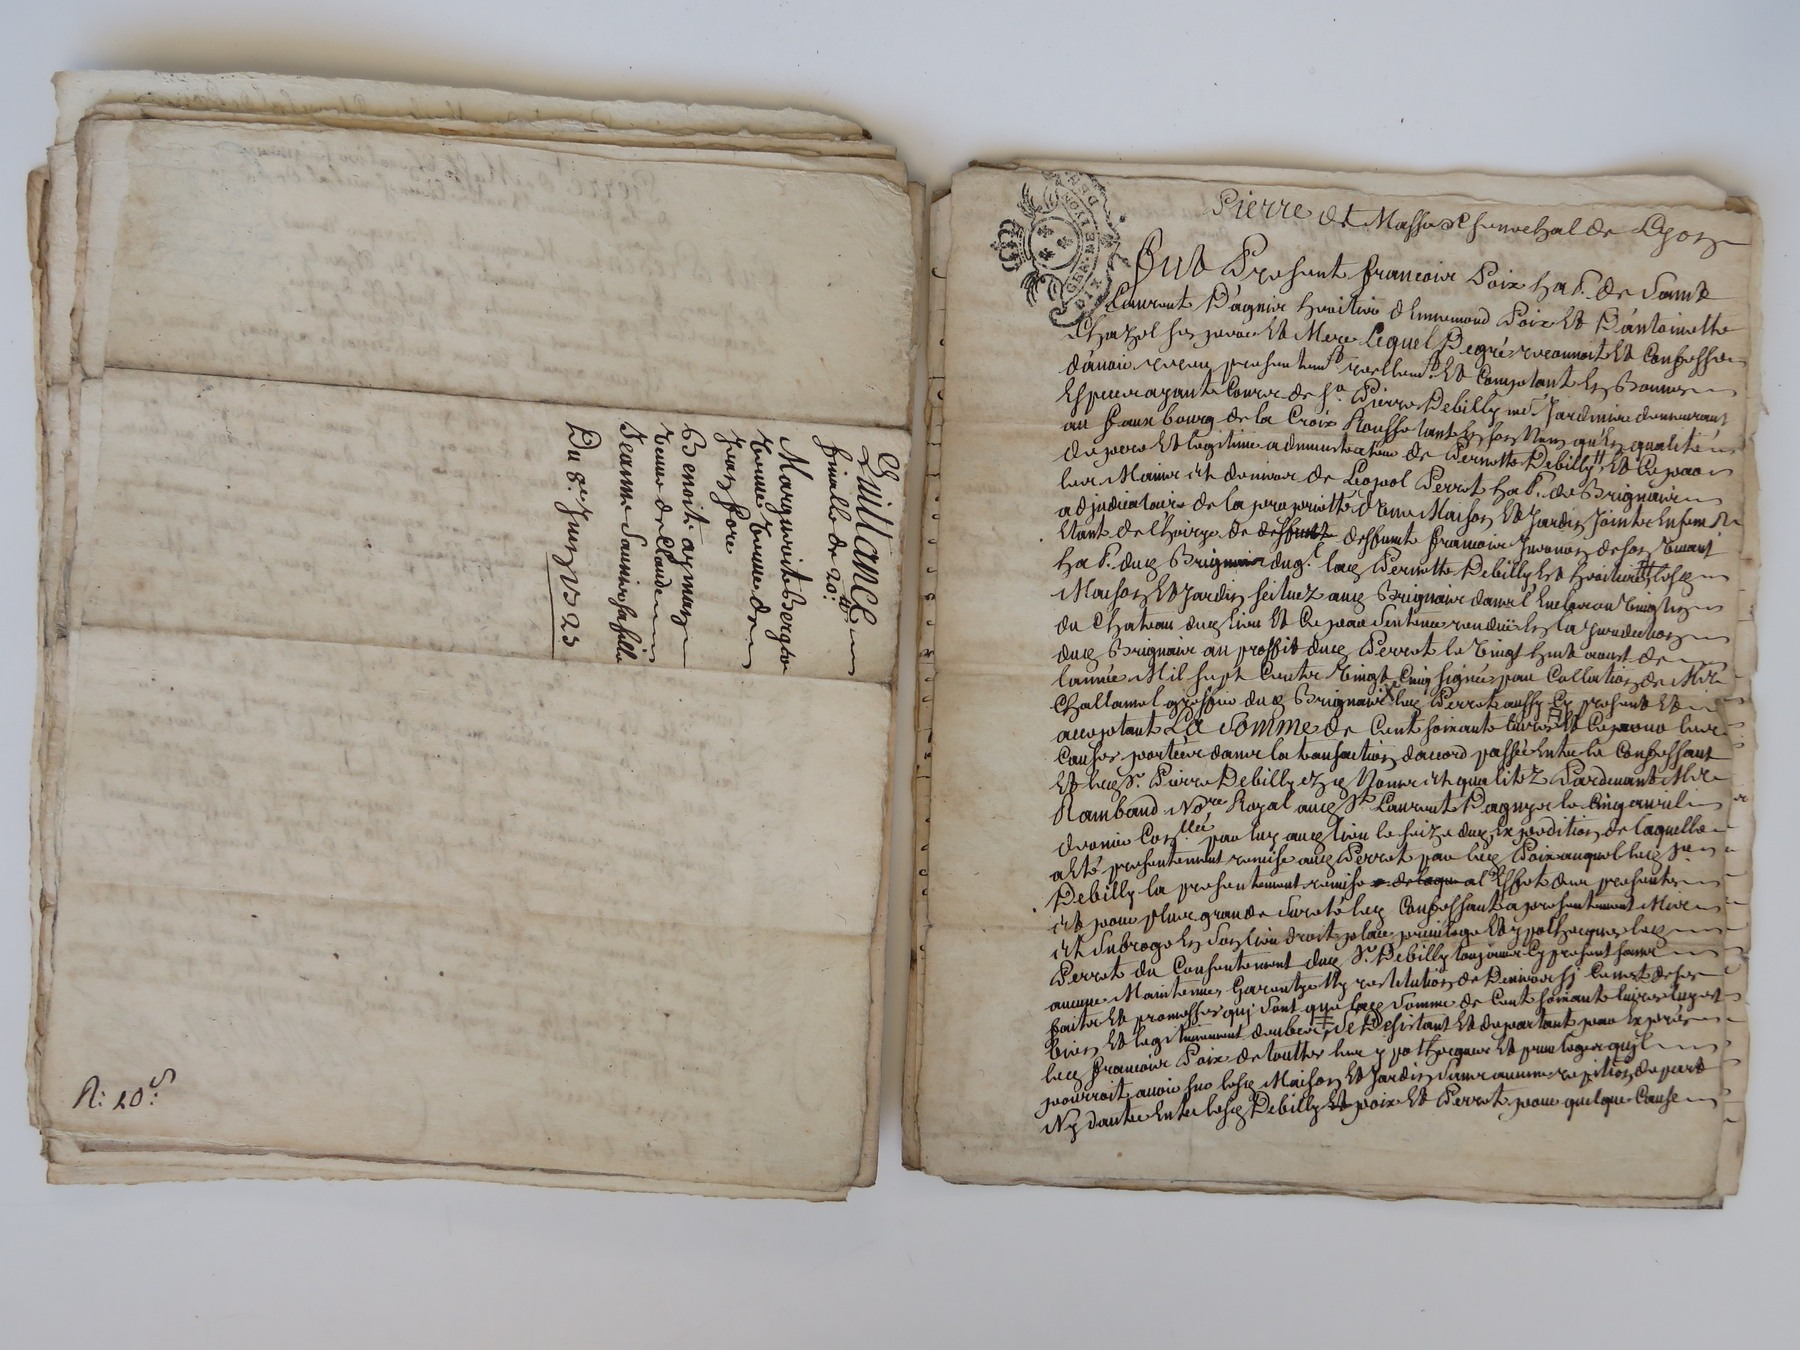 Quittance
finalle de 20:tt
Marguerite Bergeo
veuve
Jean fore
Benoit aymar
veuve de Claude
Jeanne Saunier sa fille
Du 8.e Juin 1723
R: 10s:
Pierre de Masso Senechal de Lyon
fut Present francois Poix hat. de Saint
Laurent D'agnis heritier d'Ennemond Poix Et D'antoinette
Chazel ses pere Et Mere Lequel De gré reconnoit Et Confesse
d'avoir receu presentemt. reellemt. Et Comptant En Bonnes
Especes ayant Cours de Sr. Pierre Debilly me Jardinier demeurant
au fauxbourg de la Croix Rousse tant En son Nom qu'En qualité
de pere Et legitime administrateur de Pernette Debilly Et Ce par
les Mains Et deniers de Perret hat. de Brignais
adjudicataire de la proprietté d'une Maison Et Jardin Joints Ensemble
Etant de l'hoirye de deffunt deffunt francois de son vivant
hat. dud Brignais duql. lad Pernette Debilly Est heritiere lesd
Maison Et Jardin scituez aud Brignais dans l'Enclos
du Chateau dud lieu Et Ce par Sentence rendue En la Jurisdiction
dud Brignais au proffit dud Perret le vingt huit aoust de
l'année Mil Sept Cents vingt Cinq signée par Collation de Mre
Challamel greffier dud Brignais led Perret aussy Cy present Et
acceptant La Somme de Cent soixante livres Et Ce pour les
Causes portées dans la transaction d'accord passée Entre le Confessant
Et led Sr. Pierre Debilly Ez d Noms Et qualitez Pardevant Mre
Rambaud Nore Royal aud St Laurent D'agny le Cinq avril
dernier Conllée par luy aud lieu le seize dud Expedition de laquelle
a Eté presentement remise aud Perret par led Poix auquel led
Debilly la presentement remise al'Effet des presentes
Et pour plus grande Sureté led Confessant a presentement Mis
Et Subrogé En Son lieu droit place privilege Et ypotheques led
Perret du Consentement dud Sr. Debilly toujours Cy present sans
aucune Maintenue Garentye Ny restitution de Deniers sy Ce n'est de ses
faits Et promesses quy sont que lad Somme de Cent soixante livres luy est
bien Et legitimement deube, se Desistant Et departant par Exprès
led francois Poix de touttes les ypotheques Et privileges qu'il
pourroit avoir sur lesd Maison Et Jardin sans aucune repetition de part
Ny d'autre Entre lesd Debilly Poix Et Perret pour quelque Cause